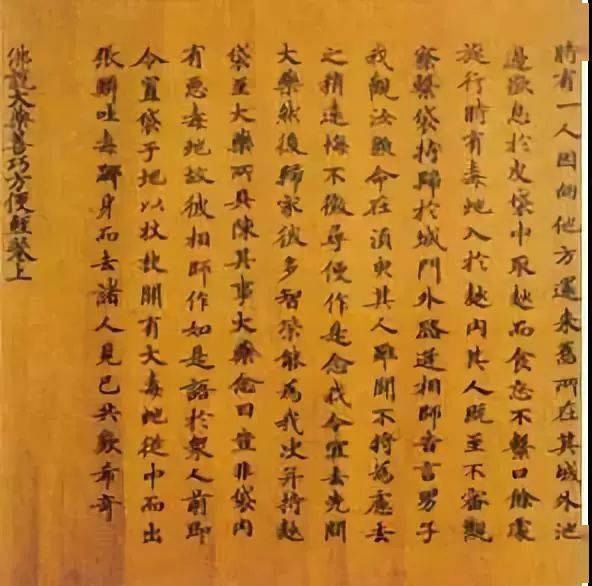 時有一人因向他方還來舊所在其城外池
邊歇息於皮袋中取麨而食忘不繫口餘處
旋行時有毒虵入於麨内其人既至不審觀
察繫袋持歸於城門外路逢相師告言男子
我觀汝顔命在須臾其人雖聞不將爲慮去
之稍遠悔不徵尋便作是念我今宜去先問
大藥然後歸家彼多智策能爲我決并持麨
袋至大藥所具陳其事大藥念曰豈非袋内
有惡毒虵故彼相師作如是語於衆人前即
令置袋于地以杖披開有大毒虵從中而出
張鱗吐毒躑身而去諸人見已共歎希奇
佛說大藥善巧方便經卷上